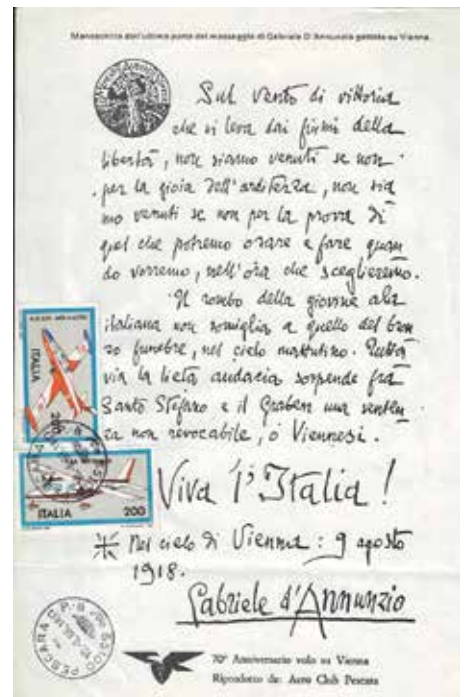 Manoscritto dell'ultima parte del messaggio di Gabriele D'Annunzio gettato su Vienna.
Sul vento di vittoria
che si leva dai fiumi della
libertà, non siamo venuti se non
per la gioia dell'arditezza, non sia
mo venuti se non per la prova di
quel che potremo osare e fare quan
do vorremo, nell'ora che sceglieremo.
Il rombo della giovine ala
italiana non somiglia a quello del bron
zo funebre, nel cielo mattutino. Tutta
via la lieta audacia sospende fra
Santo Stefano e il Graben una senten
za non revocabile, o Viennesi.
Viva l'Italia!
Nel cielo di Vienna: 9 agosto
1918.
Gabriele d'Annunzio
ITALIA
200
ITALIA 200
65100 PESCARA C.P.
70° Anniversario volo su Vienna
Riprodotto da: Aero Club Pescara